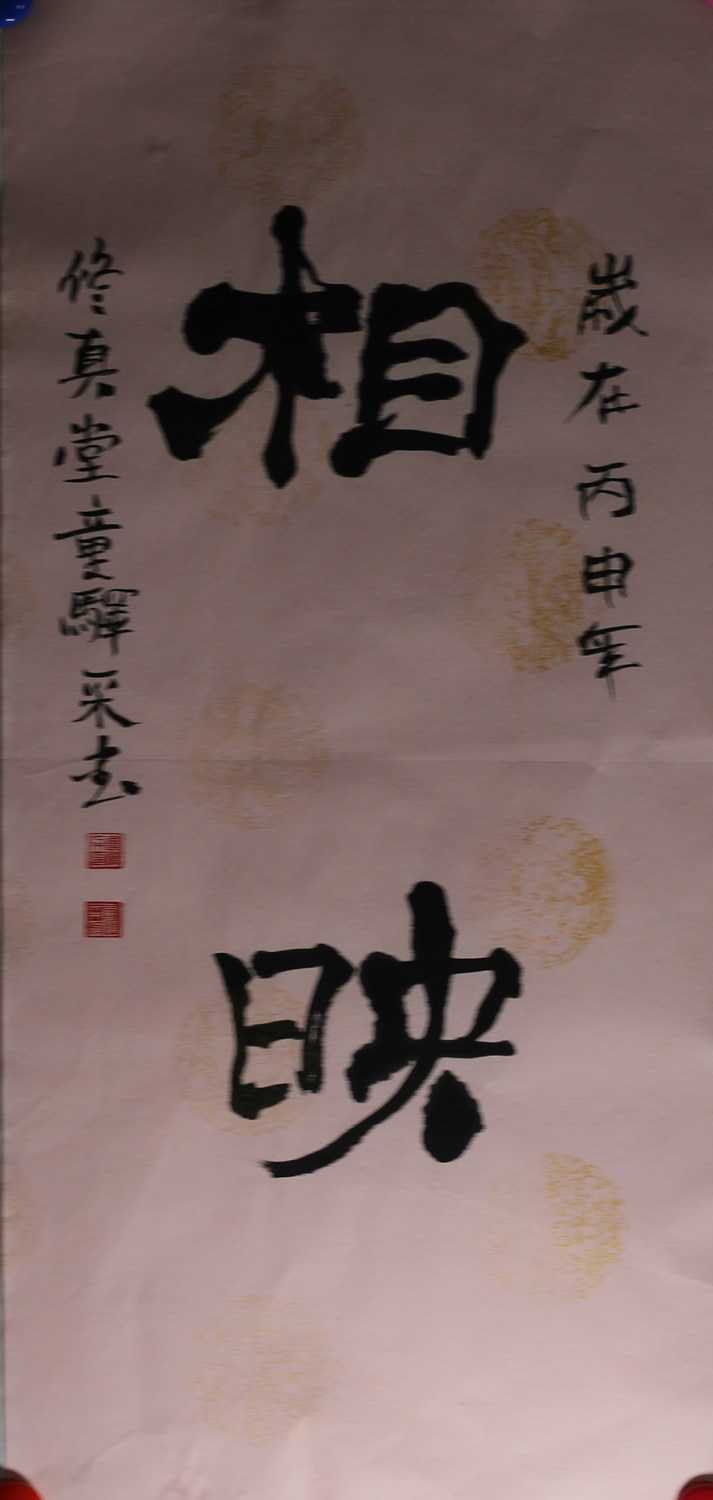 歲在丙申年
相映
修真堂童驛采書